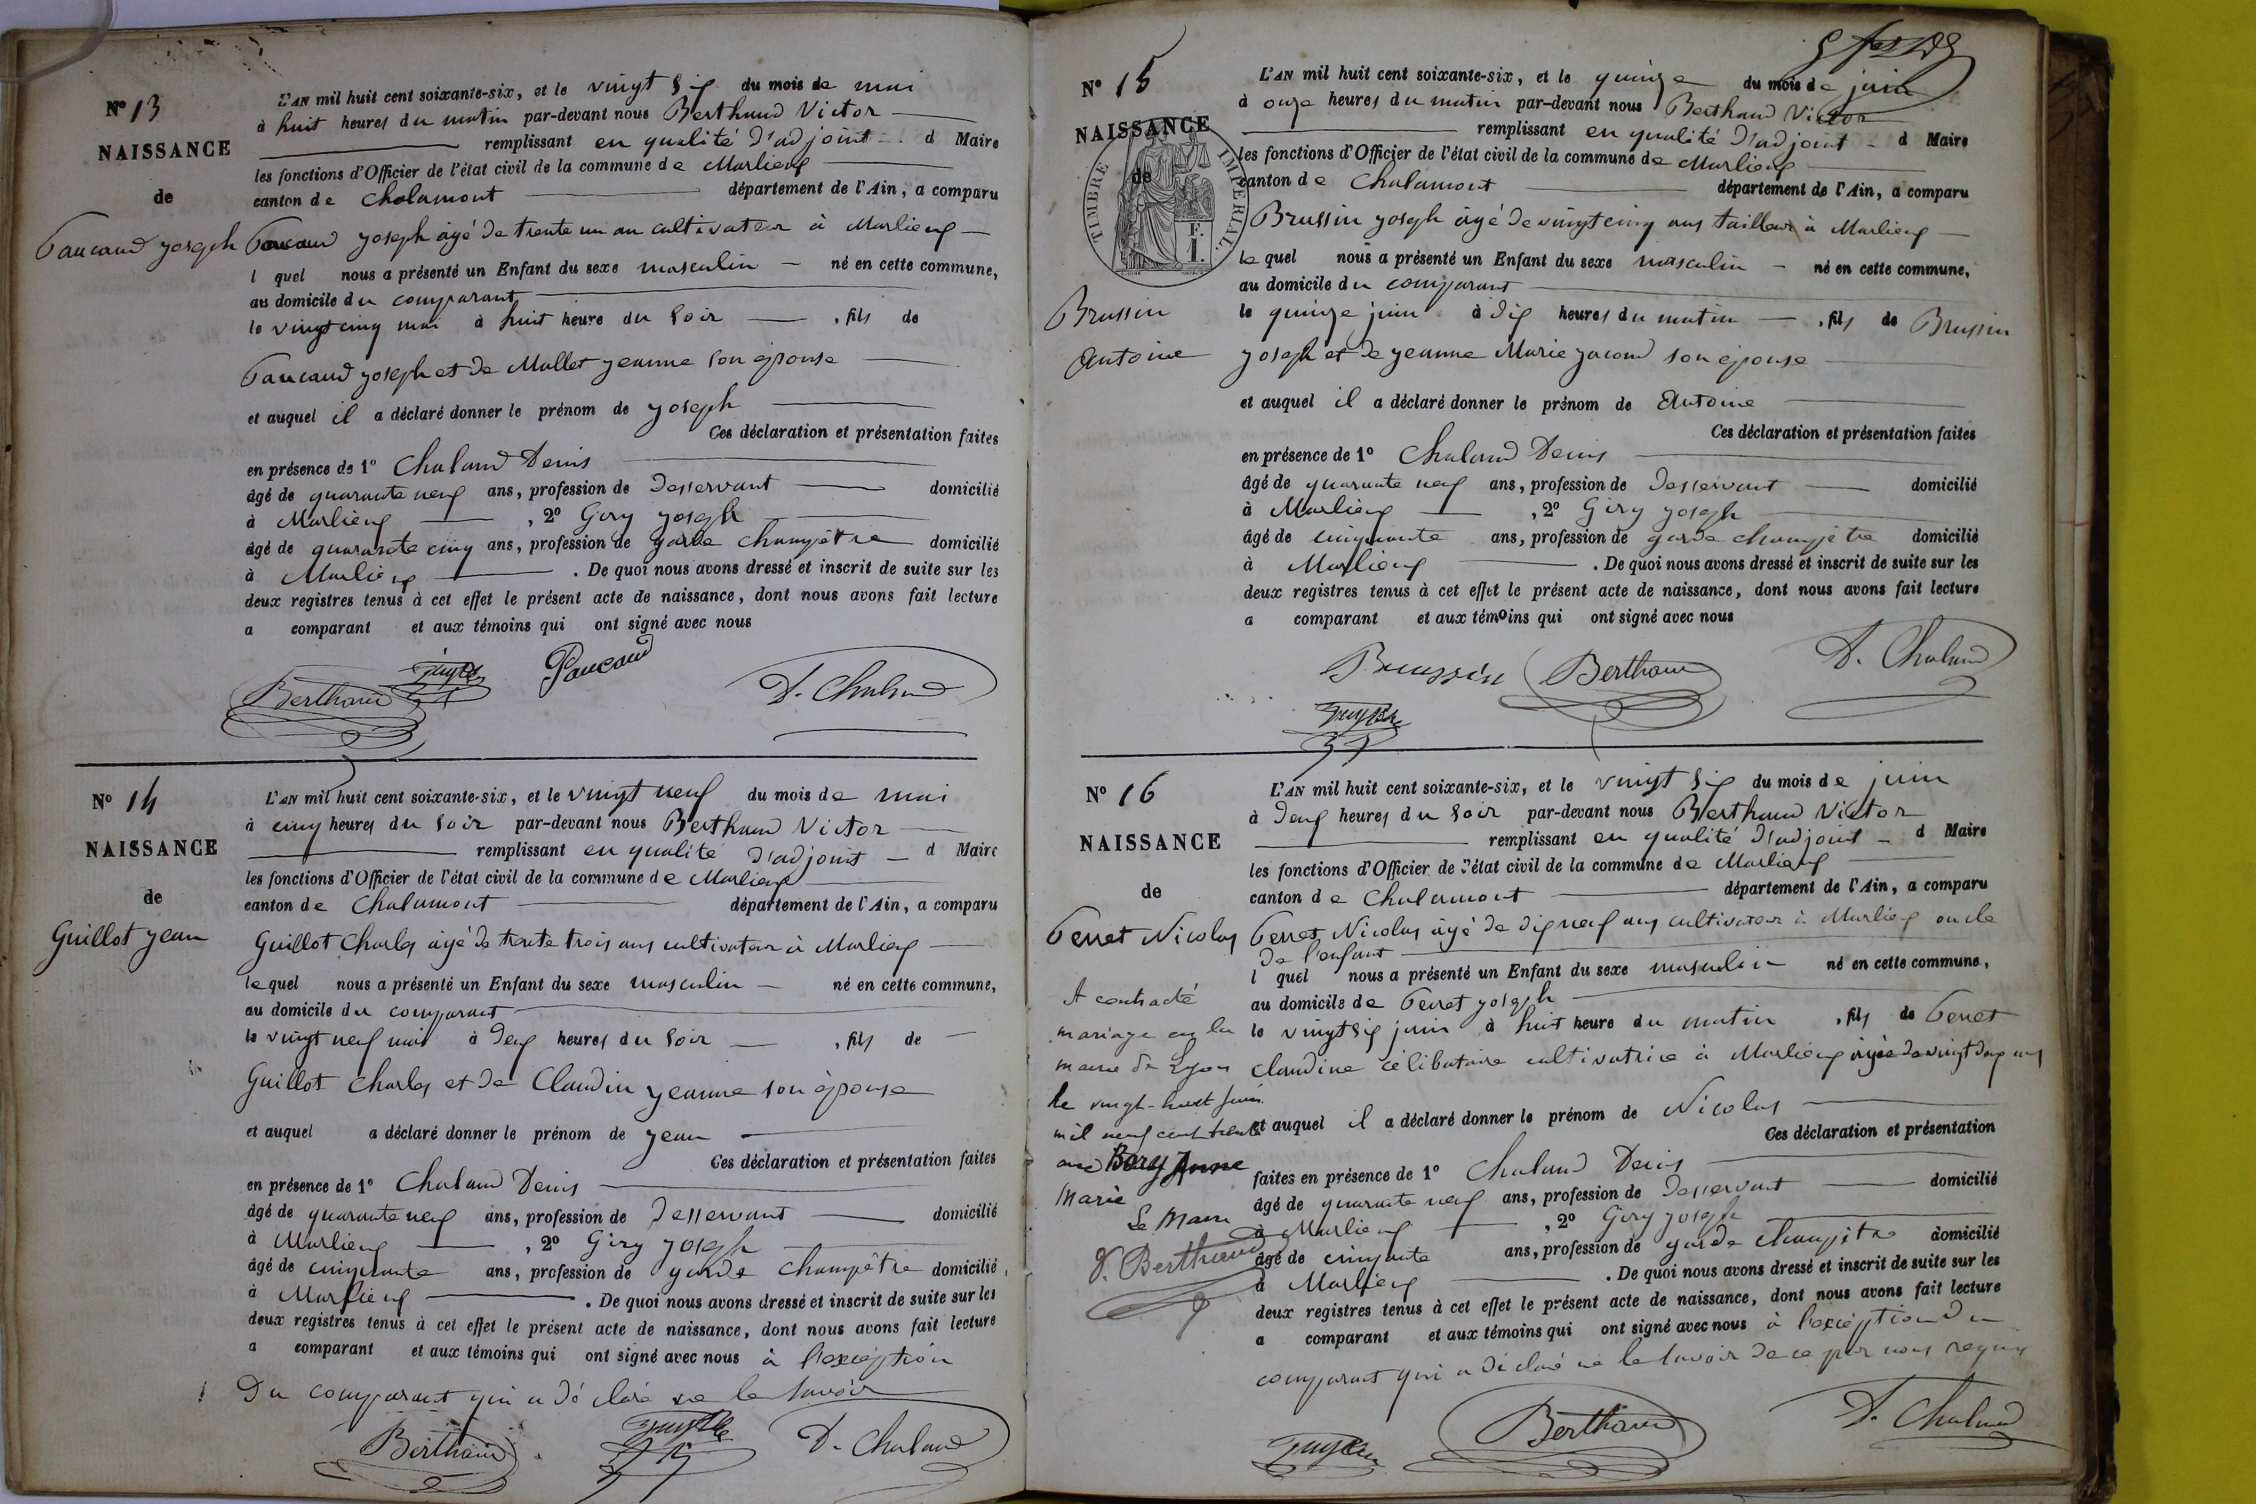 N° 13
NAISSANCE
de
Paucaud joseph
L'AN mil huit cent soixante-six, et le vingt six du mois de mai
à huit heures du matin par-devant nous Berthaud Victor
remplissant en qualité d'adjoint d Maire
les fonctions d'Officier de l'état civil de la commune de Marlieux
canton de Chalamont département de l'Ain, a comparu
Paucaud joseph âgé de trente un an cultivateur à Marlieux
l quel nous a présenté un Enfant du sexe masculin né en cette commune,
au domicile du comparant
le vingt cinq mai à huit heure du soir , fils de
Paucaud joseph et de Mallet jeanne son épouse
et auquel il a déclaré donner le prénom de joseph
Ces déclaration et présentation faites
en présence de 1° Chaland Denis
âgé de quarante neuf ans, profession de Desservant domicilié
à Marlieux , 2° Giry joseph
âgé de quarante cinq ans, profession de garde champêtre domicilié
à Marlieux . De quoi nous avons dressé et inscrit de suite sur les
deux registres tenus à cet effet le présent acte de naissance, dont nous avons fait lecture
a comparant et aux témoins qui ont signé avec nous
Paucaud
Berthaud
D. Chaland
N° 14
NAISSANCE
de
Guillot jean
L'AN mil huit cent soixante-six, et le vingt neuf du mois de mai
à cinq heures du soir par-devant nous Berthaud Victor
remplissant en qualité d'adjoint d Maire
les fonctions d'Officier de l'état civil de la commune de Marlieux
canton de Chalamont département de l'Ain, a comparu
Guillot Charles âgé de trente trois ans cultivateur à Marlieux
le quel nous a présenté un Enfant du sexe masculin né en cette commune,
au domicile du comparant
le vingt neuf mai à deux heures du soir , fils de
Guillot Charles et de Claudin jeanne son épouse
et auquel a déclaré donner le prénom de jean
Ces déclaration et présentation faites
en présence de 1° Chaland Denis
âgé de quarante neuf ans, profession de Desservant domicilié
à Marlieux , 2° Giry joseph
âgé de cinquante ans, profession de garde champêtre domicilié
à Marlieux . De quoi nous avons dressé et inscrit de suite sur les
deux registres tenus à cet effet le présent acte de naissance, dont nous avons fait lecture
a comparant et aux témoins qui ont signé avec nous à l'exception
Du comparant qui a déclaré ne le savoir
Berthaud
D. Chaland
N° 15
NAISSANCE
de
TIMBRE IMPERIAL.
F.
1.
Brussin
Antoine
L'AN mil huit cent soixante-six, et le quinze du mois de juin
à onze heures du matin par-devant nous Berthaud Victor
remplissant en qualité d'adjoint d Maire
les fonctions d'Officier de l'état civil de la commune de Marlieux
canton de Chalamont département de l'Ain, a comparu
Brussin joseph âgé de vingt cinq ans tailleur à Marlieux
le quel nous a présenté un Enfant du sexe masculin né en cette commune,
au domicile du comparant
le quinze juin à dix heures du matin , fils de Brussin
joseph et de jeanne Marie jacond son épouse
et auquel il a déclaré donner le prénom de Antoine
Ces déclaration et présentation faites
en présence de 1° Chaland Denis
âgé de quarante neuf ans, profession de Desservant domicilié
à Marlieux , 2° Giry joseph
âgé de cinquante ans, profession de garde champêtre domicilié
à Marlieux . De quoi nous avons dressé et inscrit de suite sur les
deux registres tenus à cet effet le présent acte de naissance, dont nous avons fait lecture
a comparant et aux témoins qui ont signé avec nous
Brussin Berthaud D. Chaland
N° 16
NAISSANCE
de
Perret Nicolas
A contracté
mariage en la
mairie de Lyon
le vingt-huit juin
mil neuf cent trente
avec Bory Anne
Marie
Le Maire
V. Berthaud
L'AN mil huit cent soixante-six, et le vingt six du mois de juin
à deux heures du soir par-devant nous Berthaud Victor
remplissant en qualité d'adjoint d Maire
les fonctions d'Officier de l'état civil de la commune de Marlieux
canton de Chalamont département de l'Ain, a comparu
Perret Nicolas âgé de dix neuf ans cultivateur à Marlieux oncle
de l'enfant
l quel nous a présenté un Enfant du sexe masculin né en cette commune,
au domicile de Perret joseph
le vingt six juin à huit heure du matin , fils de Perret
claudine célibataire cultivatrice à Marlieux âgée de vingt deux ans
et auquel il a déclaré donner le prénom de Nicolas
Ces déclaration et présentation
faites en présence de 1° Chaland Denis
âgé de quarante neuf ans, profession de Desservant domicilié
à Marlieux , 2° Giry joseph
âgé de cinquante ans, profession de garde champêtre domicilié
à Marlieux . De quoi nous avons dressé et inscrit de suite sur les
deux registres tenus à cet effet le présent acte de naissance, dont nous avons fait lecture
a comparant et aux témoins qui ont signé avec nous à l'exception du
comparant qui a déclaré ne le savoir de ce par nous requis
Berthaud
D. Chaland